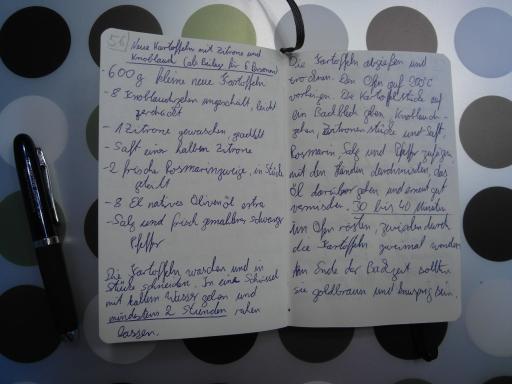 56
Neue Kartoffeln mit Zitrone und
Knoblauch (als Beilage für 6 Personen)
- 600 g kleine neue Kartoffeln
- 8 Knoblauchzehen ungeschält, leicht
zerdrückt
- 1 Zitrone gewaschen, geachtelt
- Saft einer halben Zitrone
- 2 frische Rosmarinzweige, in Stücke
- 8 El natives Olivenöl extra
- Salz und frisch gemahlener schwarzer
Pfeffer
Die Kartoffeln waschen und in
Stücke schneiden. In eine Schüssel
mit kaltem Wasser geben und
mindestens 2 Stunden ruhen
lassen.
Die Kartoffeln abgießen und
trocknen. Den Ofen auf 200°C
vorheizen. Die Kartoffelstücke auf
ein Backblech geben, Knoblauch-
zehen, Zitronenstücke und -Saft,
Rosmarin, Salz und Pfeffer zufügen,
mit den Händen durchmischen, das
Öl darüber geben und erneut gut
vermischen. 30 bis 40 Minuten
im Ofen rösten, zwischendurch
die Kartoffeln zweimal wenden.
Am Ende der Backzeit sollten
sie goldbraun und knusprig sein.